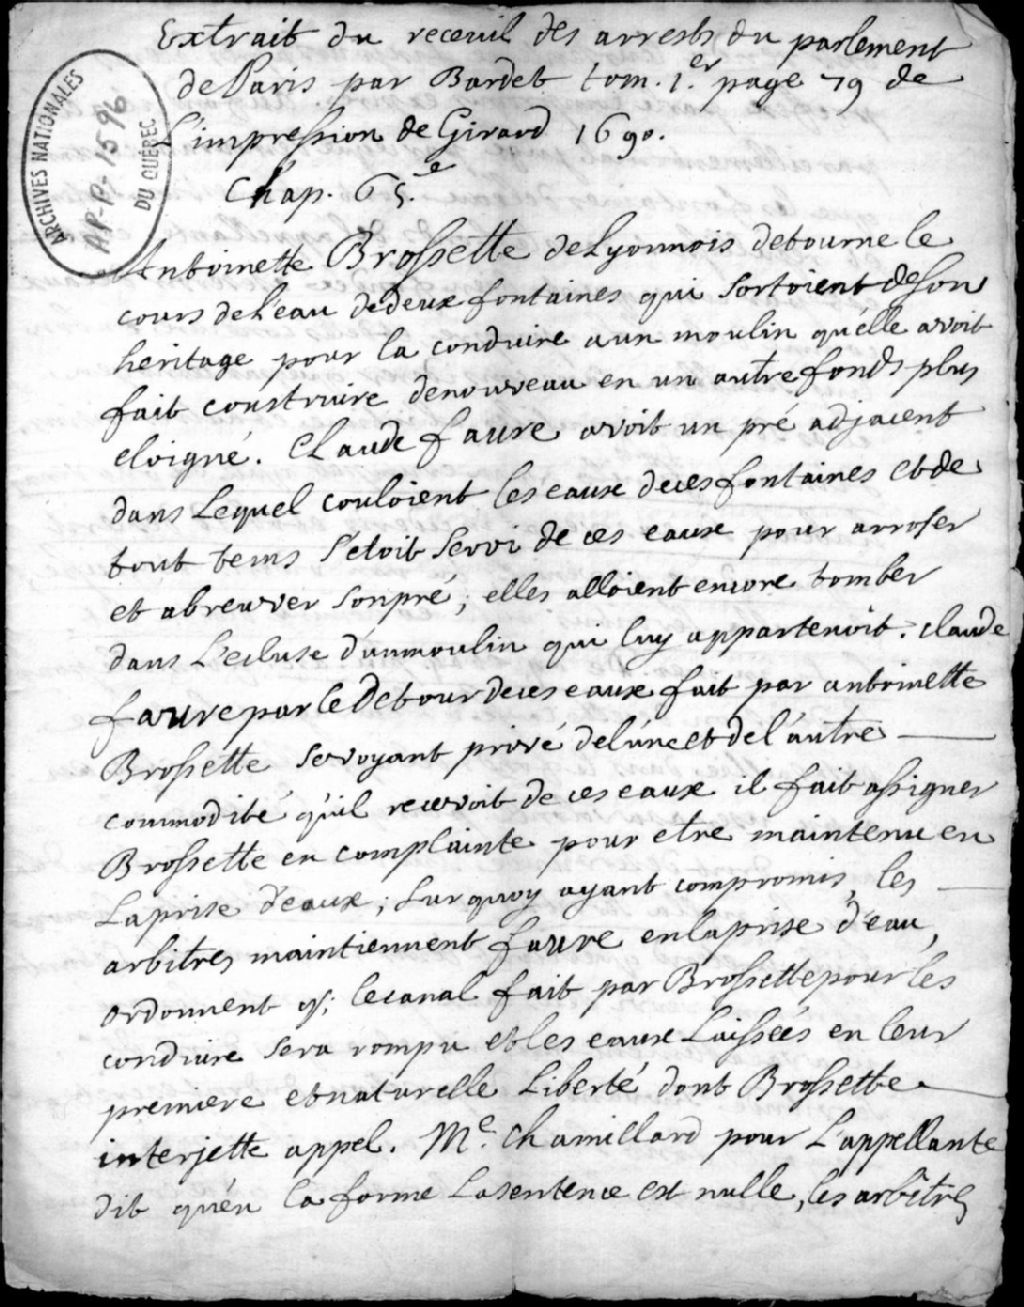 Extrait du receuil des arrests du parlement
de Paris par Bardet tom. 1.er page 79 de
L'impression de Girard 1690.
Chap. 65.e
ARCHIVES NATIONALES
AP-P-1596
DU QUÉBEC
Antoinette Brossette de Lyonnois detourne le
cours de l'eau de deux fontaines qui sortoient de son
heritage pour la conduire a un moulin qu'elle avoit
fait construire de nouveau en un autre fonds plus
eloigné. Claude faure avoit un pré adjacent
dans Lequel couloient les eaux de ces fontaines et de
tout tems s'etoit servi de ces eaux pour arroser
et abreuver son pré; elles alloient encore tomber
dans L'ecluse d'un moulin qui luy appartenoit. claude
faure par le detour de ces eaux fait par antoinette
Brossette se voyant privé de l'une et de l'autre
commodité qu'il recevoit de ces eaux il fait assigner
Brossette en complainte pour etre maintenu en
La prise d'eaux; sur quoy ayant compromis, les
arbitres maintiennent faure en la prise d'eau,
ordonnent q; le canal fait par Brossette pour les
conduire sera rompu et les eaux Laissées en leur
premiere et naturelle Liberté dont Brossette
interjette appel. Me. Chamillard pour L'appellante
dit qu'en la forme La sentence est nulle, les arbitres